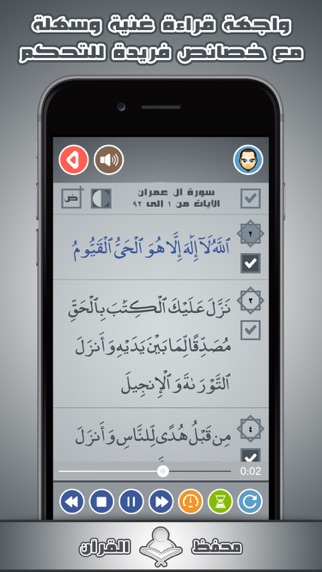 واجهة قراءة غنية وسهلة
مع خصائص فريدة للتحكم
سورة آل عمران
الآيات من ١ إلى ٩٢
ض
٢
ٱللَّهُ لَآ إِلَٰهَ إِلَّا هُوَ ٱلْحَىُّ ٱلْقَيُّومُ
٣
نَزَّلَ عَلَيْكَ ٱلْكِتَٰبَ بِٱلْحَقِّ
مُصَدِّقًا لِّمَا بَيْنَ يَدَيْهِ وَأَنزَلَ
ٱلتَّوْرَىٰةَ وَٱلْإِنجِيلَ
٤
مِن قَبْلُ هُدًى لِّلنَّاسِ وَأَنزَلَ
0:02
محفظ القرآن